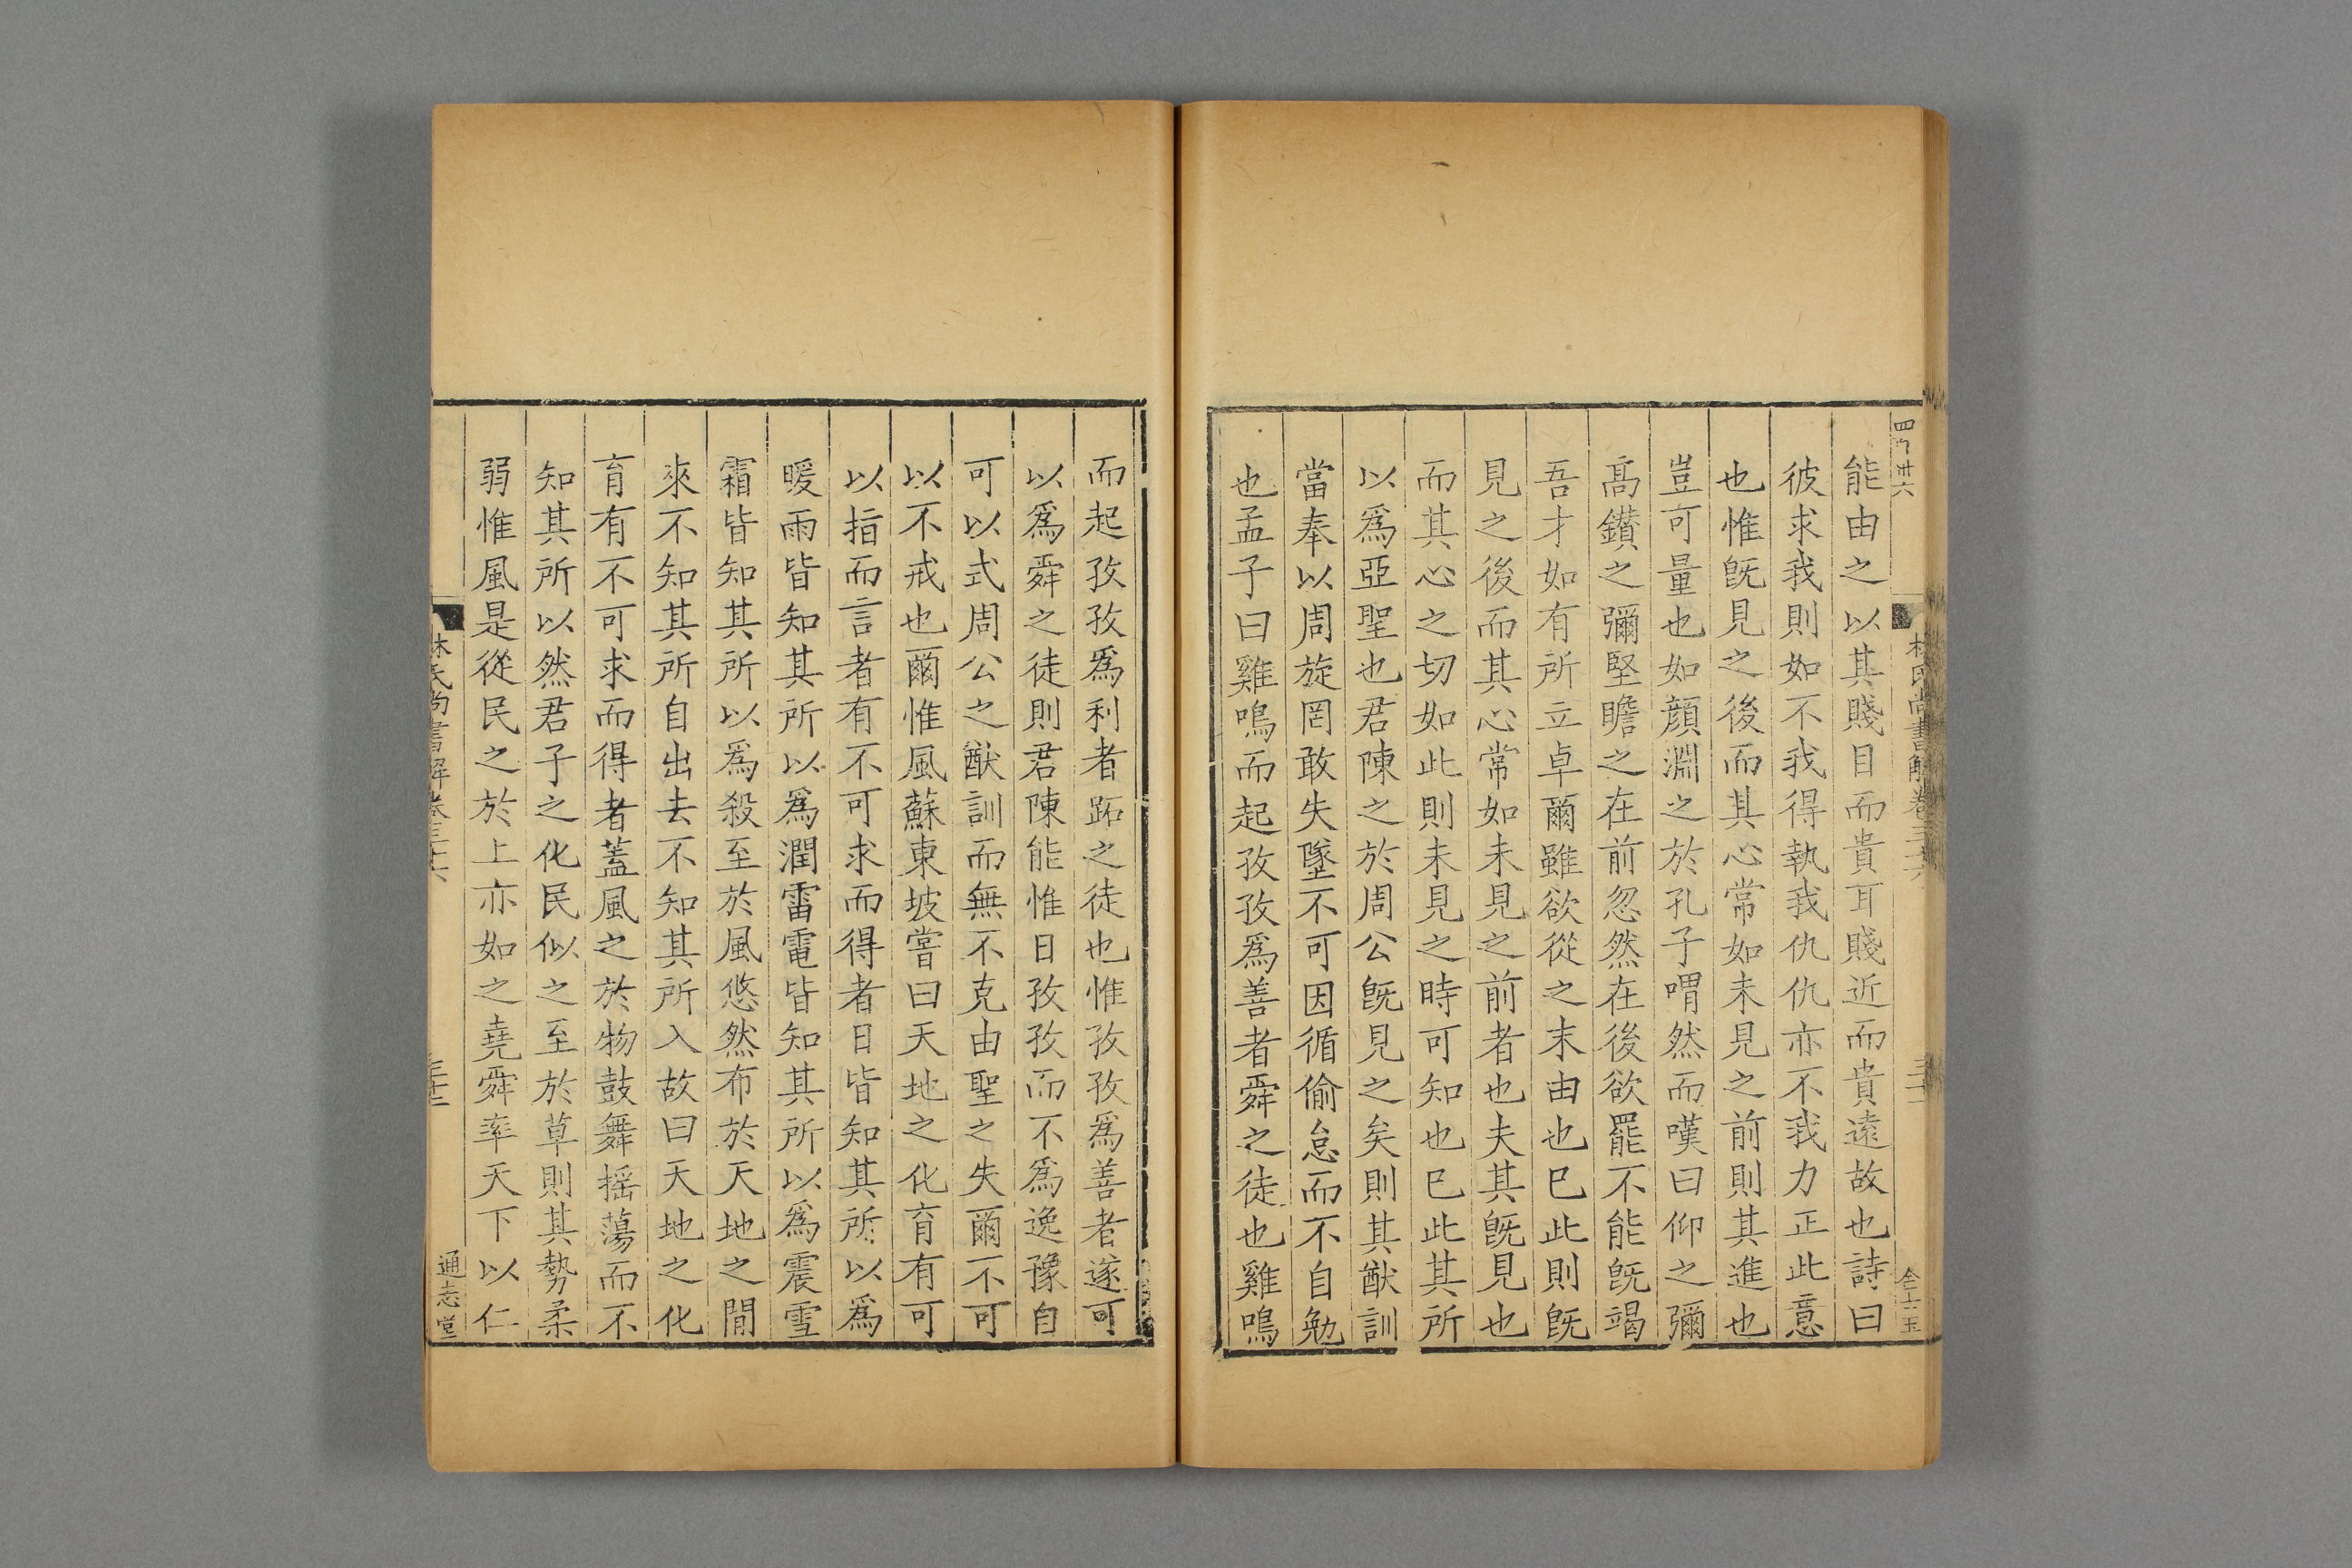 能由之以其賤目而貴耳賤近而貴遠故也詩曰
彼求我則如不我得執我仇仇亦不我力正此意
也惟旣見之後而其心常如未見之前則其進也
豈可量也如顔淵之於孔子喟然而嘆曰仰之彌
髙鑚之彌堅瞻之在前忽然在後欲罷不能旣竭
吾才如有所立卓爾雖欲從之末由也巳此則旣
見之後而其心常如未見之前者也夫其旣見也
而其心之切如此則未見之時可知也巳此其所
以爲亞聖也君陳之於周公旣見之矣則其猷訓
當奉以周旋罔敢失墜不可因循偷怠而不自勉
也孟子曰雞鳴而起孜孜爲善者舜之徒也雞鳴
而起孜孜爲利者跖之徒也惟孜孜爲善者遂可
以爲舜之徒則君陳能惟日孜孜而不爲逸豫自
可以式周公之猷訓而無不克由聖之失爾不可
以不戒也爾惟風蘇東坡嘗曰天地之化育有可
以指而言者有不可求而得者日皆知其所以爲
暖雨皆知其所以爲潤雷電皆知其所以爲震雪
霜皆知其所以爲殺至於風悠然布於天地之間
來不知其所自出去不知其所入故曰天地之化
育有不可求而得者蓋風之於物鼓舞摇蕩而不
知其所以然君子之化民似之至於草則其勢柔
弱惟風是從民之於上亦如之堯舜率天下以仁
林氏尚書解卷三十六
通志堂